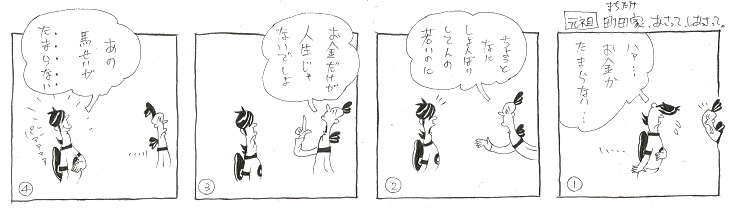 まちだけ
元祖 町田家、あさって、しあさって。
ハァ…
お金が
たまらない…
①
ちょっと
なに
しょんぼり
してんの
若いのに
②
お金だけが
人生じゃ
ないでしょ
③
あの
が
たまらない
④